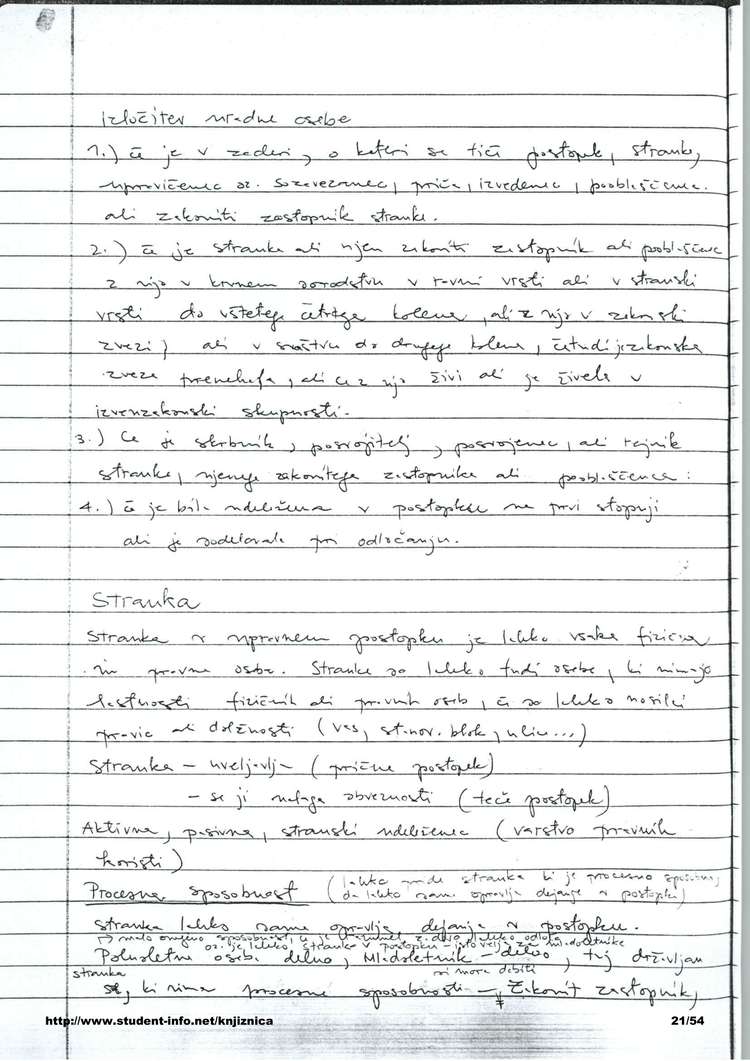 Izločitev uradne osebe
1.) če je v zadevi, o kateri se tiče postopek, stranka,
upravičenec oz. sozavezanec, priča, izvedenec, pooblaščenec
ali zakoniti zastopnik stranke.
2.) če je stranka ali njen zakoniti zastopnik ali pooblaščenec
z njo v krvnem sorodstvu v ravni vrsti ali v stranski
vrsti do vštetega četrtega kolena, ali z njo v zakonski
zvezi, ali v svaštvu do drugega kolena, četudi je zakonska
zveza prenehala, ali če z njo živi ali je živela v
izvenzakonski skupnosti.
3.) Če je skrbnik, posvojitelj, posvojenec, ali rejnik
stranke, njenega zakonitega zastopnika ali pooblaščenca:
4.) če je bila udeležena v postopku na prvi stopnji
ali je sodelovala pri odločanju.
Stranka
Stranka v upravnem postopku je lahko vsaka fizična
in pravna oseba. Stranke so lahko tudi osebe, ki nimajo
lastnosti fizičnih ali pravnih oseb, če so lahko nosilci
pravic ali dolžnosti (vas, stanov. blok, ulica...)
Stranka - uveljavlja (prične postopek)
- se ji nalaga obveznosti (teče postopek)
Aktivna, pasivna, stranski udeleženec (varstvo pravnih
koristi)
Procesna sposobnost (lahko stranka ki je procesno sposobna,
da lahko sama opravlja dejanja v postopku)
stranka lahko sama opravlja dejanja v postopku.
oz. je lahko stranka v postopku - isto velja za ml. doletnike
Polnoletna oseba delno, Mladoletnik - delno, tuj državljan
stranka si mora dobiti
ki nima procesne sposobnosti - zakonit zastopnik,
http://www.student-info.net/knjiznica 21/54